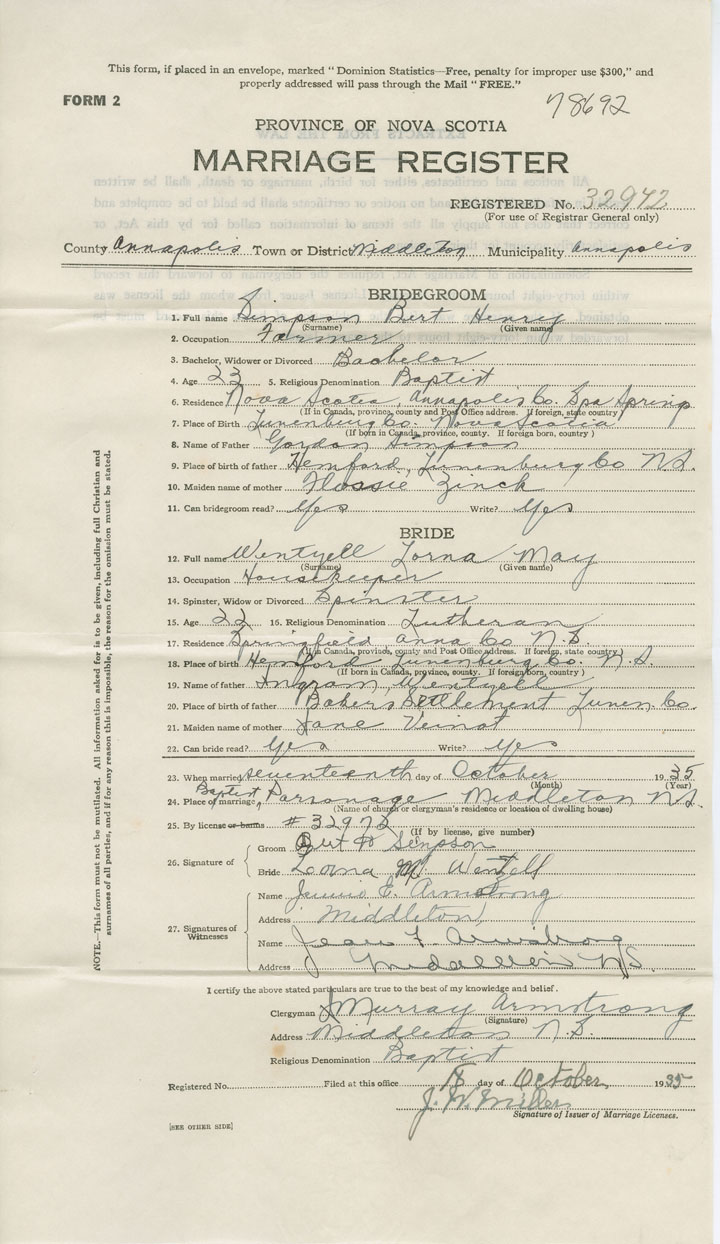 This form, if placed in an envelope, marked "Dominion Statistics—Free, penalty for improper use $300," and
properly addressed will pass through the Mail "FREE."
FORM 2
78692
PROVINCE OF NOVA SCOTIA
MARRIAGE REGISTER
REGISTERED No. 32942
(For use of Registrar General only)
County Annapolis Town or District Middleton Municipality Annapolis
BRIDEGROOM
1. Full name Simpson Bert Henry
(Surname) (Given name)
2. Occupation Farmer
3. Bachelor, Widower or Divorced Bachelor
4. Age 23 5. Religious Denomination Baptist
6. Residence Nova Scotia, Annapolis Co. Spa Springs
(If in Canada, province, county and Post Office address. If foreign, state country)
7. Place of Birth Lunenburg Co. Nova Scotia
(If born in Canada, province, county. If foreign born, country )
8. Name of Father Gordon Simpson
9. Place of birth of father Hemford, Lunenburg Co N.S.
10. Maiden name of mother Flossie Zinck
11. Can bridegroom read? Yes Write? Yes
BRIDE
12. Full name Wentzell Lorna May
(Surname) (Given name)
13. Occupation Housekeeper
14. Spinster, Widow or Divorced Spinster
15. Age 22 16. Religious Denomination Lutheran
17. Residence Springfield Anna Co N.S.
(If in Canada, province, county and Post Office address. If foreign, state country )
18. Place of birth Hemford Lunenburg Co. N.S.
(If born in Canada, province, county. If foreign born, country )
19. Name of father Ingram Wentzell
20. Place of birth of father Bakers Settlement Lunen. Co.
21. Maiden name of mother Jane Veinot
22. Can bride read? Yes Write? Yes
23. When married seventeenth day of October 1935
(Month) (Year)
24. Place of marriage, Baptist Parsonage Middleton N.S.
(Name of church or clergyman's residence or location of dwelling house)
25. By license or banns # 32972
(If by license, give number)
26. Signature of
Groom Bert H Simpson
Bride Lorna M Wentzell
27. Signatures of Witnesses
Name Jennie E. Armstrong
Address Middleton
Name Jean F. Armstrong
Address Middleton N.S.
I certify the above stated particulars are true to the best of my knowledge and belief.
Clergyman Murray Armstrong
(Signature)
Address Middleton N.S.
Religious Denomination Baptist
Registered No. Filed at this office 18 day of October 1935
J. W. Miller
Signature of Issuer of Marriage Licenses.
[SEE OTHER SIDE]
NOTE.—This form must not be mutilated. All information asked for is to be given, including full Christian and
surnames of all parties, and if for any reason this is impossible, the reason for the omission must be stated.